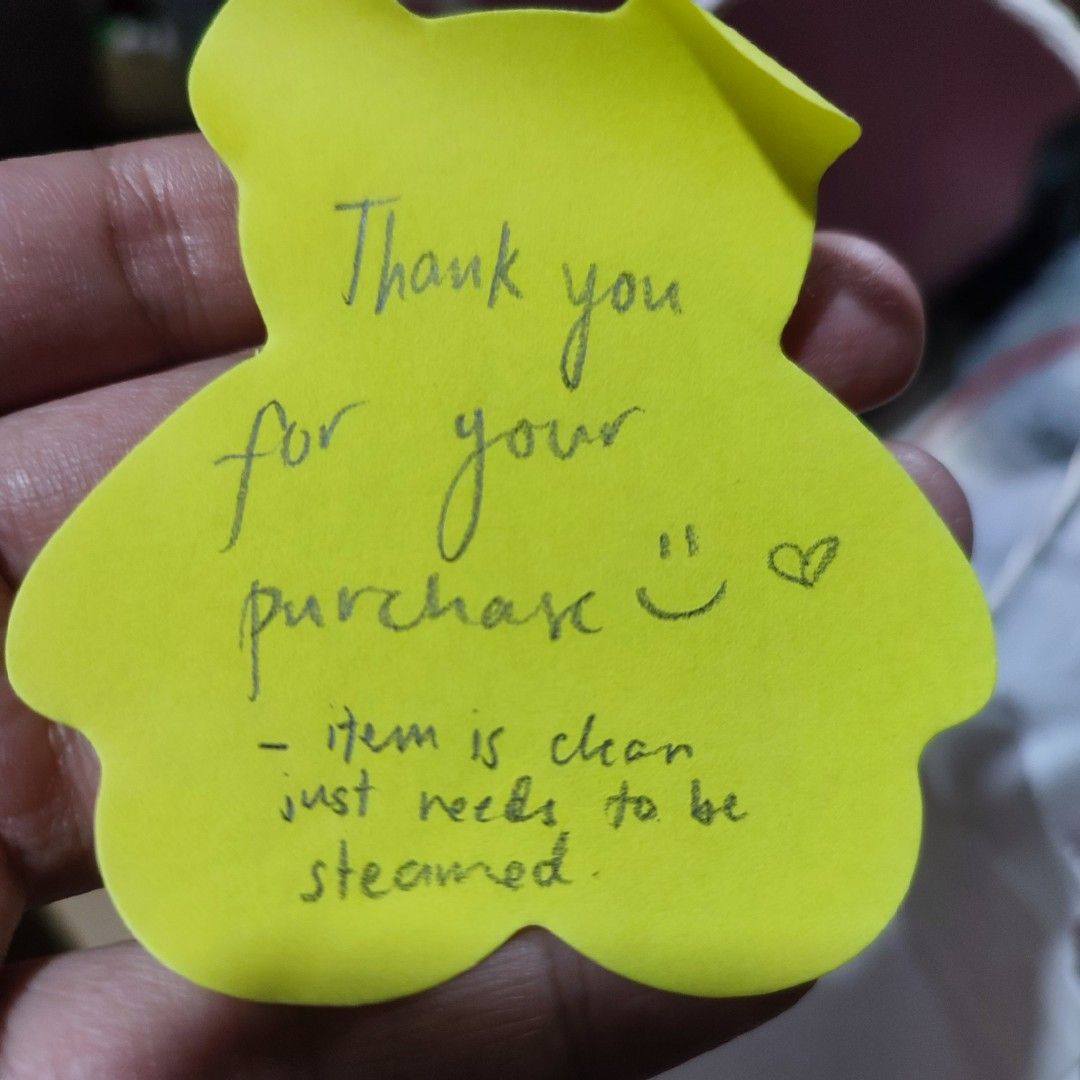 Thank you
for your
purchase
- item is clean
just needs to be
steamed.